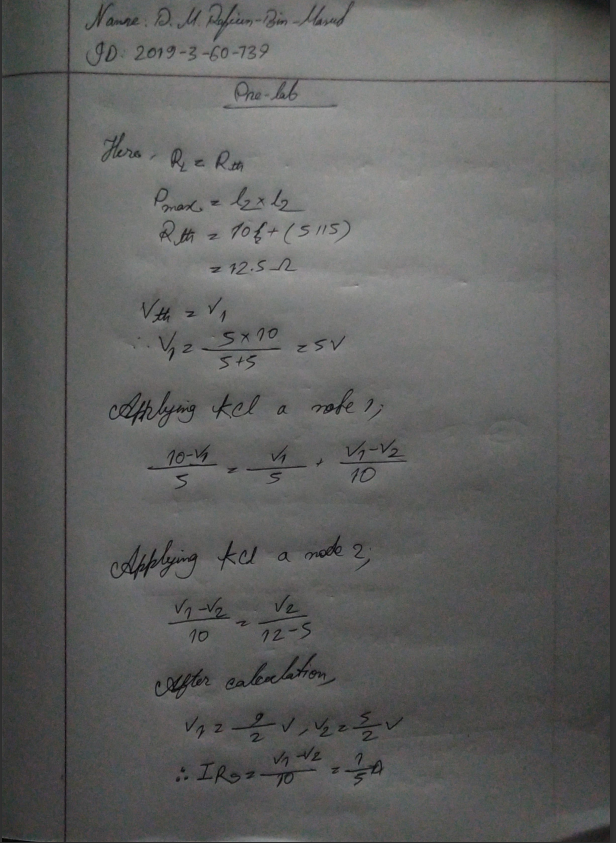 Name: D. M. Rafiun-Bin-Masud
ID: 2019-3-60-739
Pre-lab
Here, R_L = R_th
P_max = I_2 × I_2
R_th = 10 + (5 || 5)
= 12.5 Ω
V_th = V_1
∴ V_1 = 5×10 / 5+5 = 5V
Applying KCl a node 1;
10-V_1 / 5 = V_1 / 5 + V_1-V_2 / 10
Applying KCl a node 2;
V_1-V_2 / 10 = V_2 / 12-5
After calculation,
V_1 = 9/2 V, V_2 = 5/2 V
∴ IR_3 = V_1-V_2 / 10 = 1/5 A